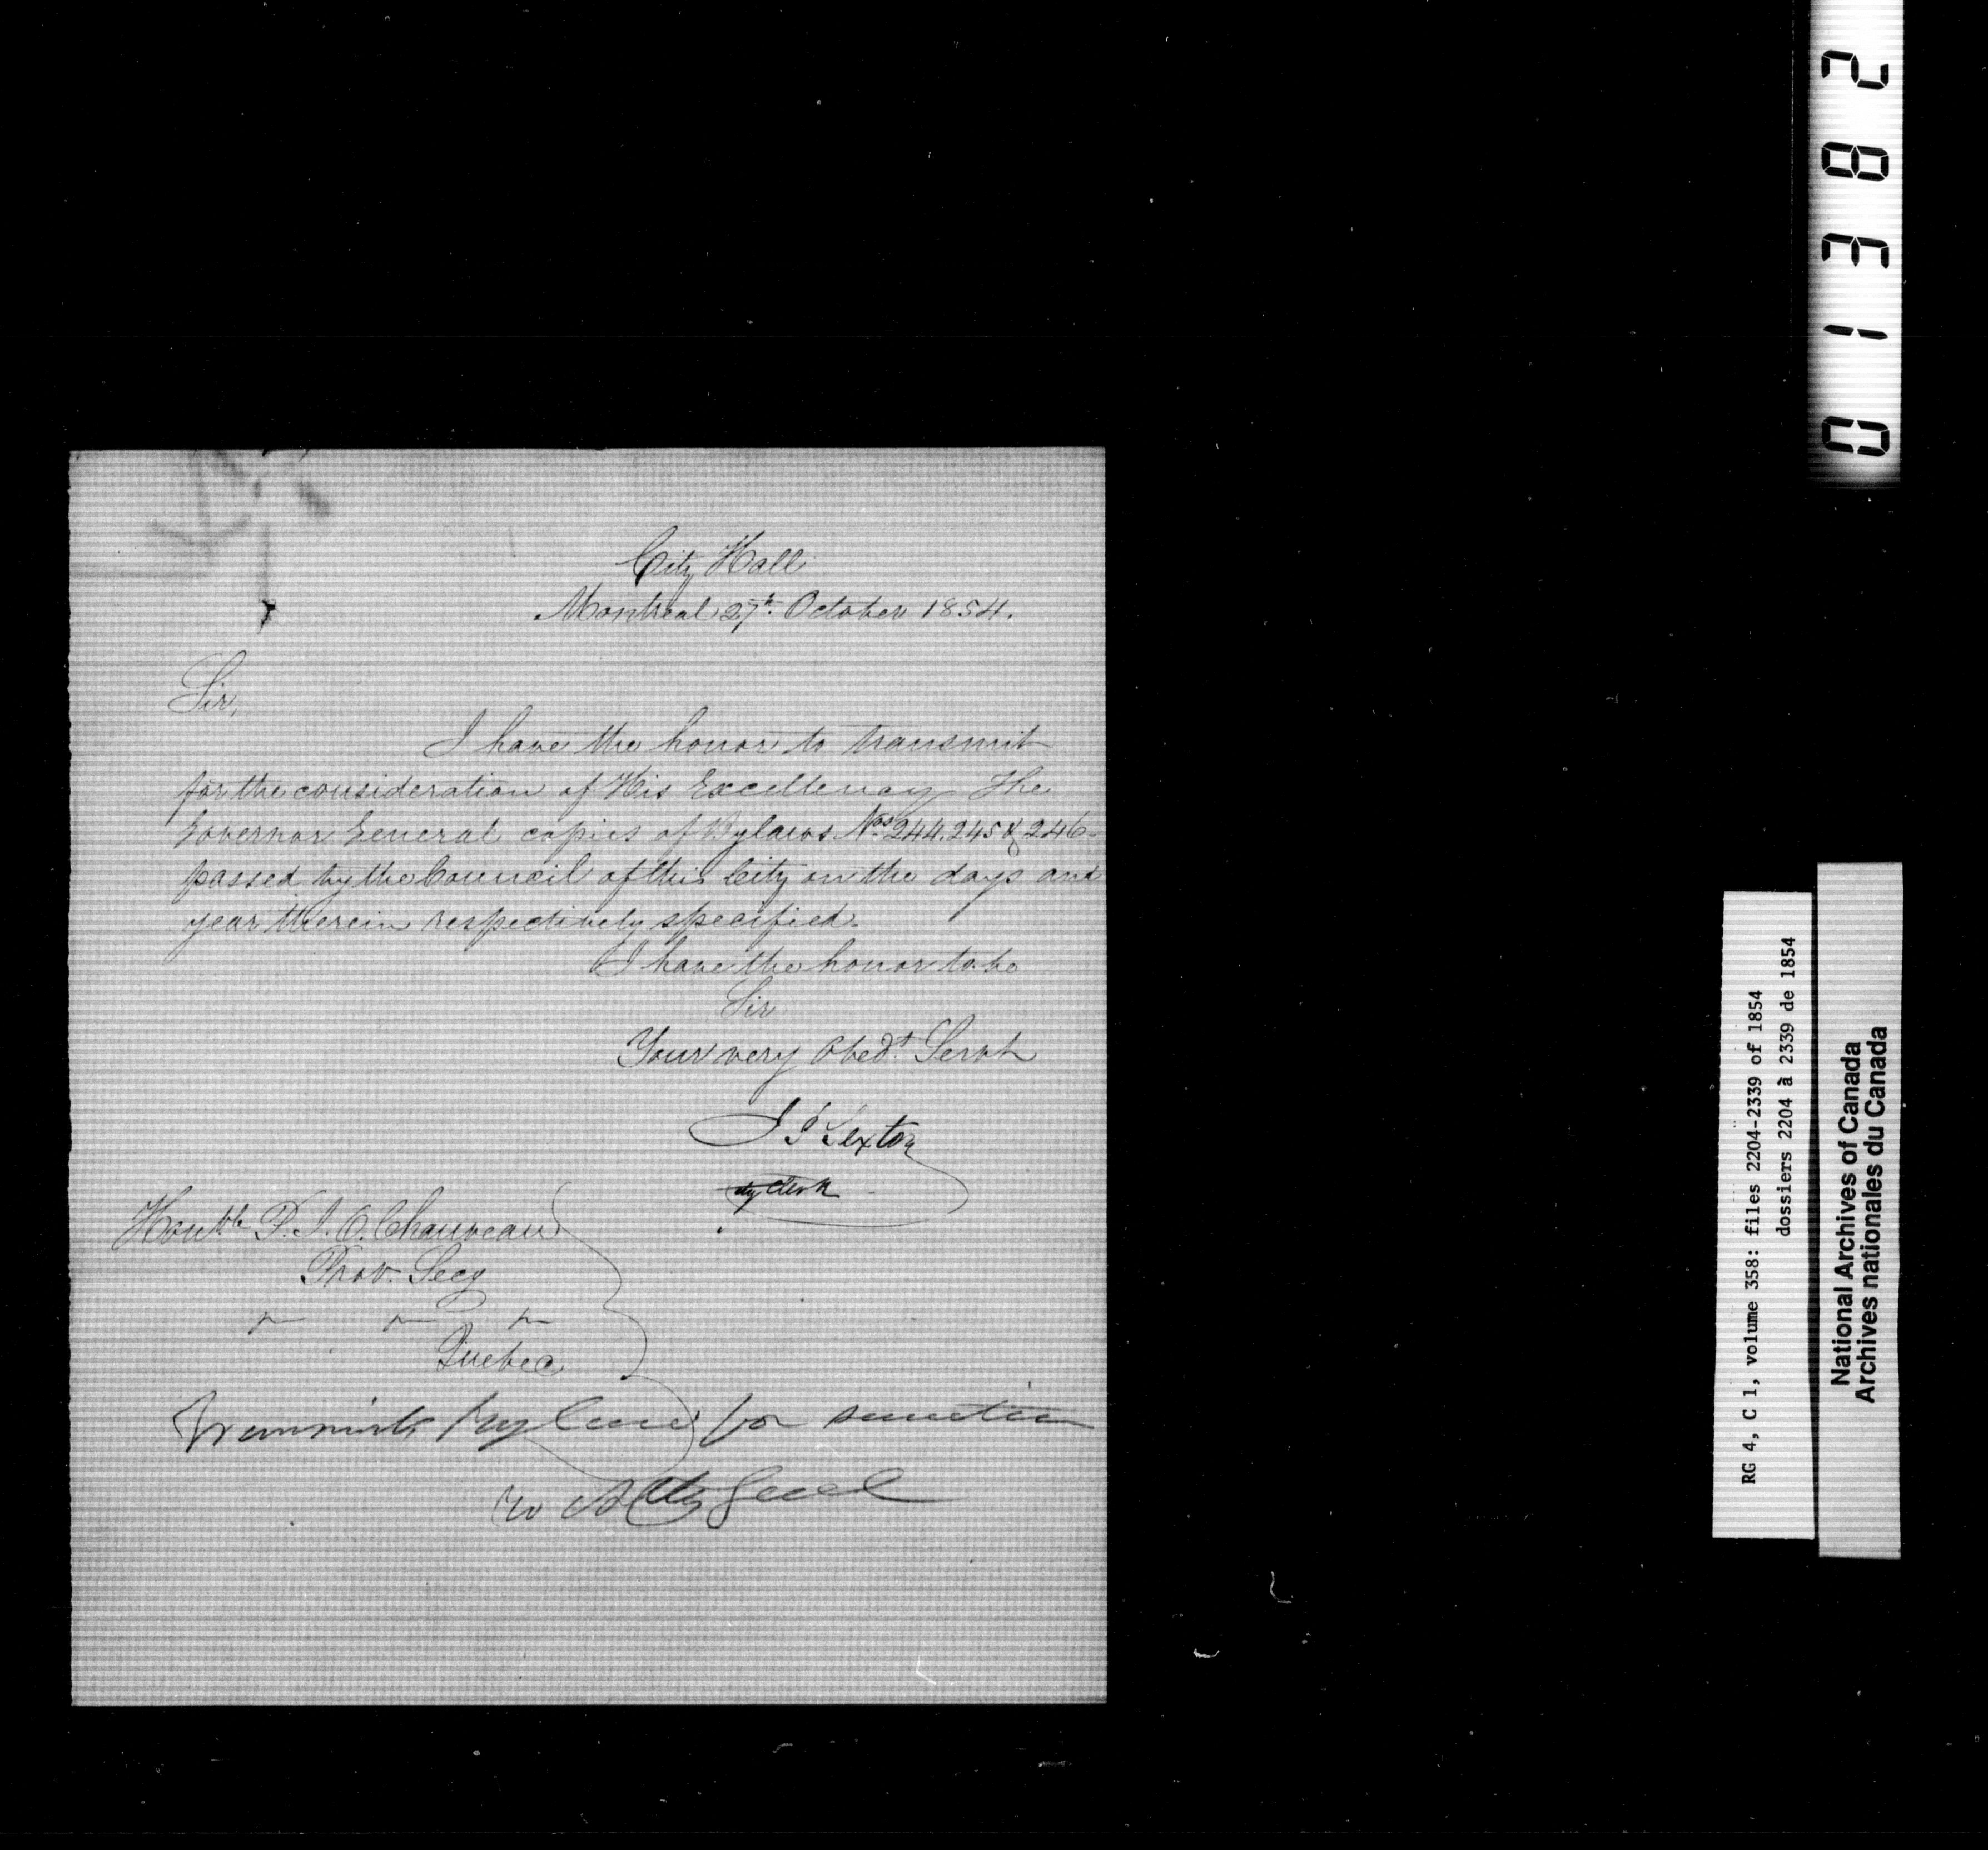 City Hall
Montreal 27th. October 1854.
Sir,
I have the honor to transmit
for the consideration of His Excellency The
Governor General copies of Bylaws Nos. 244.245 & 246-
passed by the Council of this City on the days and
year therein respectively specified.
I have the honor to be
Sir
Your very Obedt. Servt
J P Sexton
City Clerk
Honble. P. J. O. Chauveau
Prov. Secy
Quebec
Transmits by laws for sanction
to Atty Genel
01382
RG 4, C 1, volume 358: files 2204-2339 of 1854
dossiers 2204 à 2339 de 1854
National Archives of Canada
Archives nationales du Canada